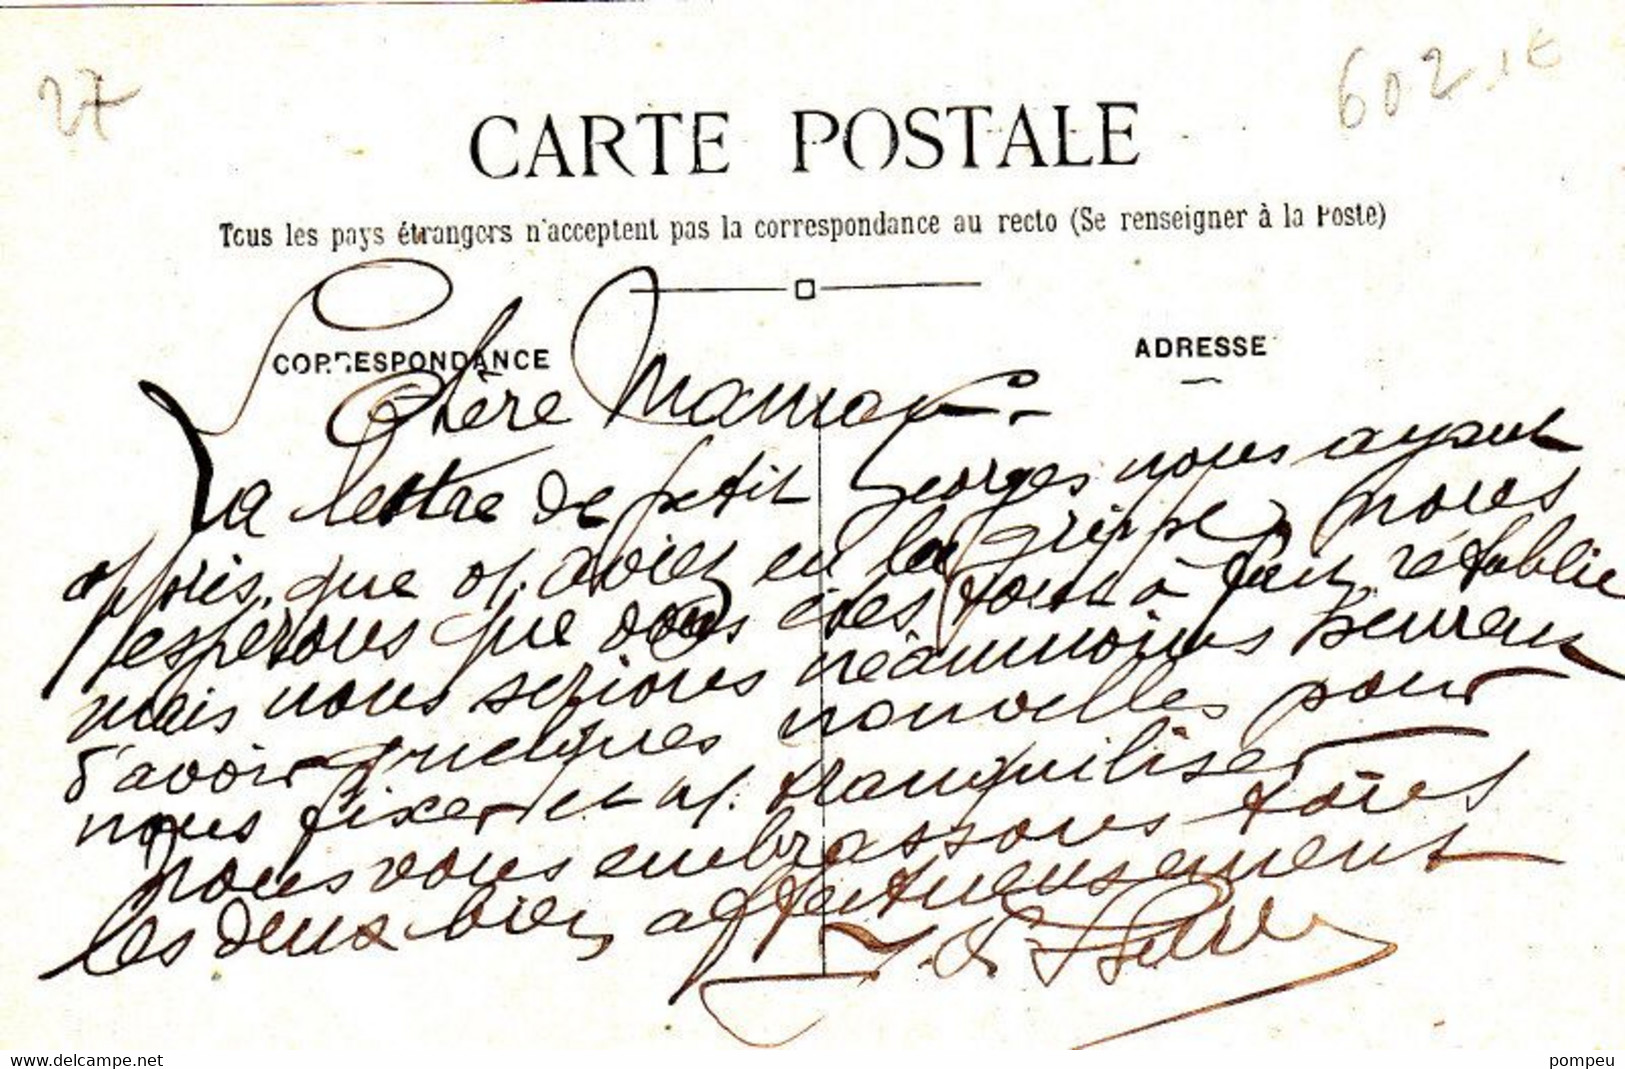 27
602 1E
CARTE POSTALE
Tous les pays étrangers n'acceptent pas la correspondance au recto (Se renseigner à la Poste)
CORRESPONDANCE
ADRESSE
Chère Maman.
La lettre de petit Georges nous ayant
appris que v. aviez eu la grippe, nous
espérons que vous êtes tout à fait rétablie
mais nous serions néanmoins heureux
d'avoir quelques nouvelles pour
nous fixer et n/. tranquiliser
Nous vous embrassons tous
les deux bien affectueusement
www.delcampe.net
pompeu